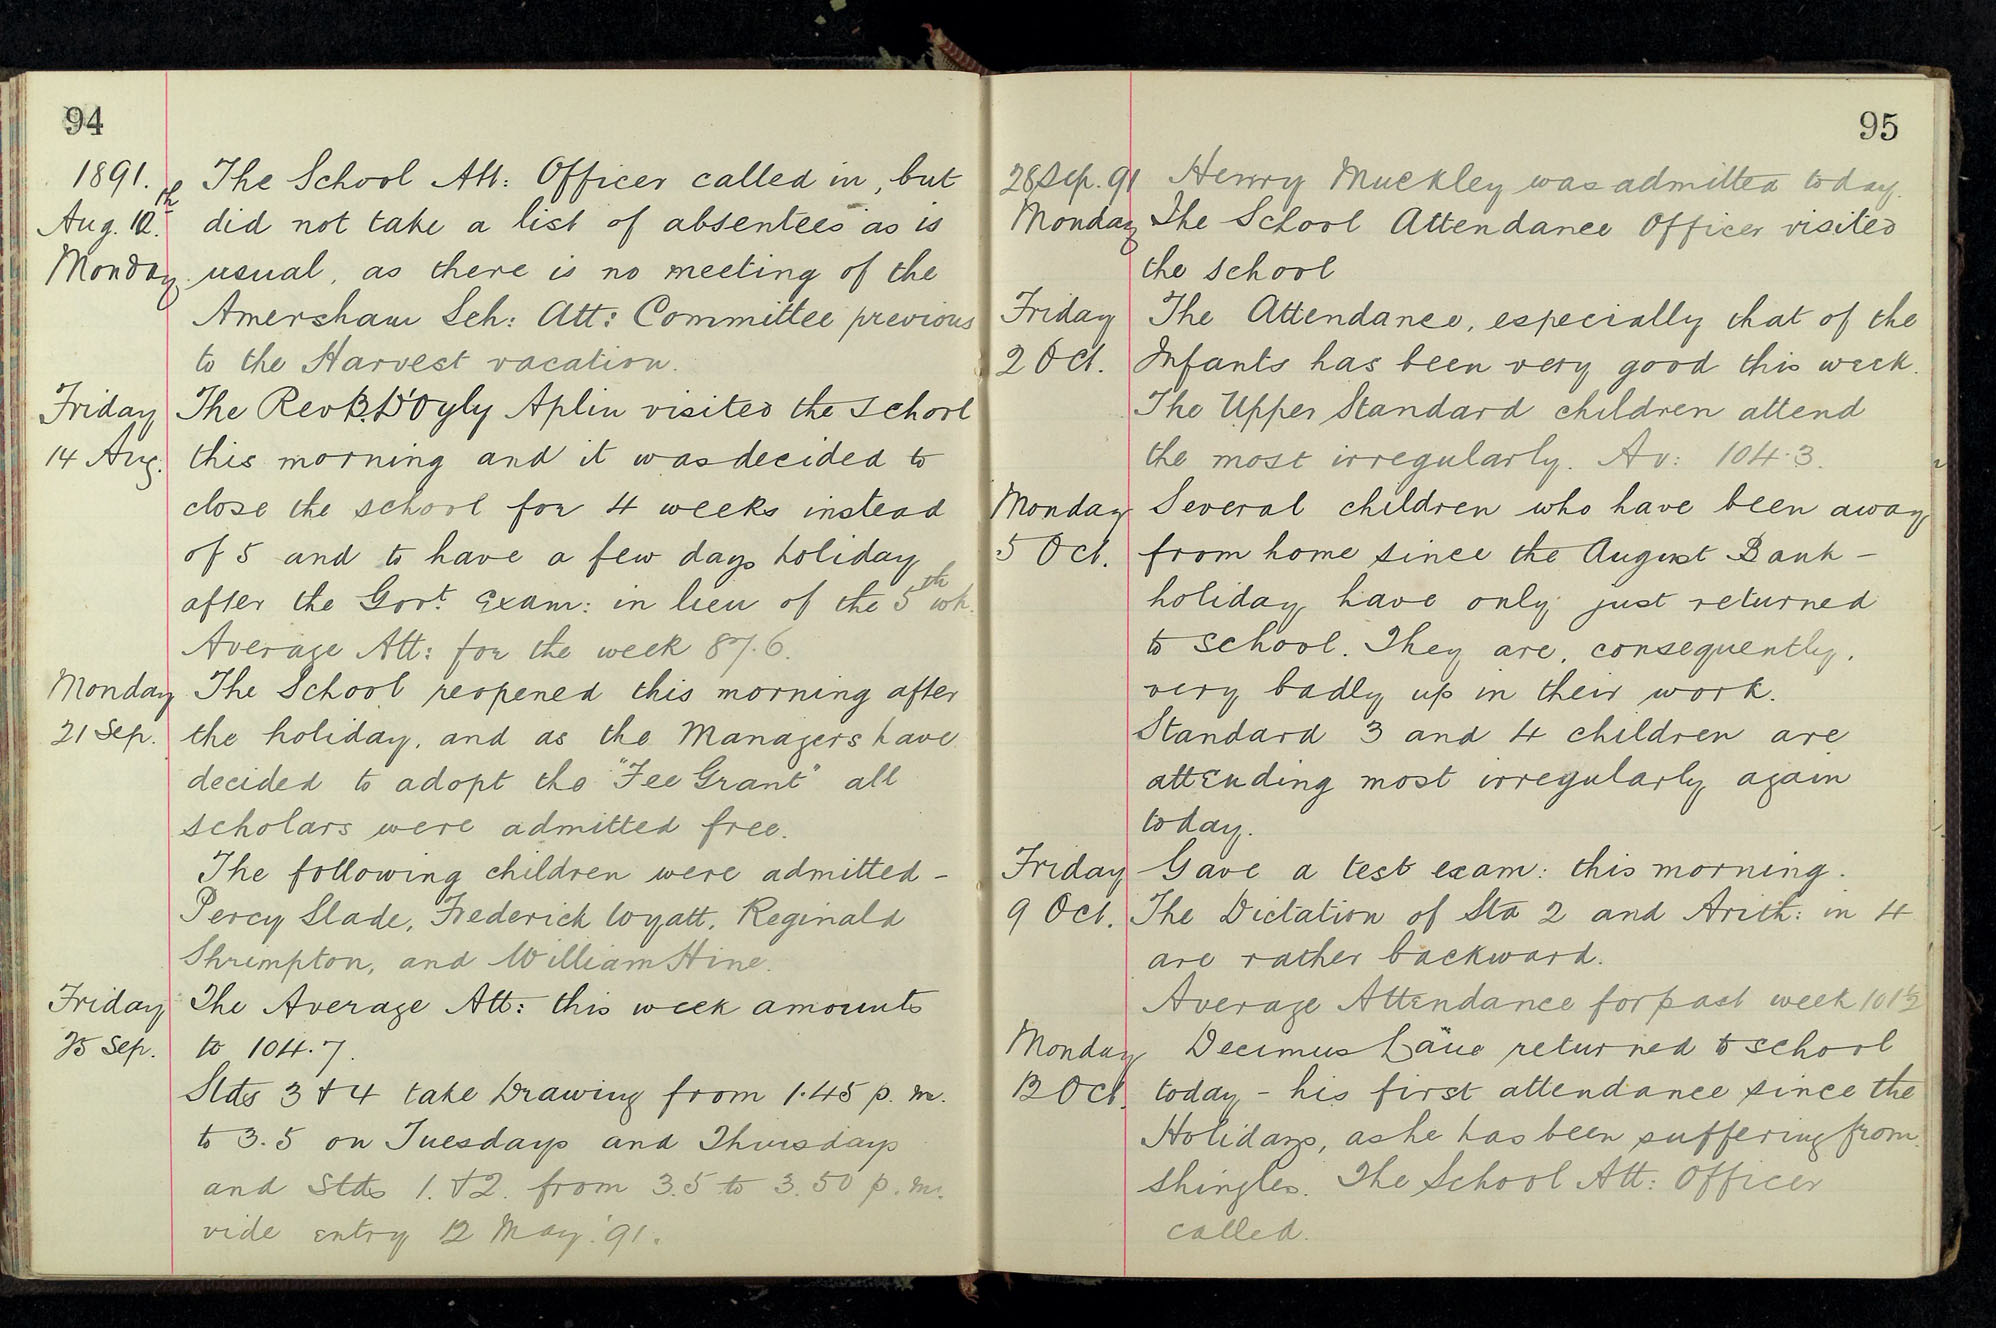 94
1891. The School Att: Officer called in, but
Aug. 10th. did not take a list of absentees as is
Monday usual, as there is no meeting of the
Amersham Sch: Att: Committee previous
to the Harvest vacation.
Friday The Rev B. D'Oyly Aplin visited the school
14 Aug. this morning and it was decided to
close the school for 4 weeks instead
of 5 and to have a few days holiday
after the Govt. Exam: in lieu of the 5th wk.
Average Att: for the week 87.6.
Monday The School reopened this morning after
21 Sep. the holiday, and as the Managers have
decided to adopt the "Fee Grant" all
scholars were admitted free.
The following children were admitted -
Percy Slade, Frederick Wyatt, Reginald
Shrimpton, and William Hine.
Friday The Average Att: this week amounts
25 Sep. to 104.7.
Stds 3 & 4 take Drawing from 1.45 p.m.
to 3.5 on Tuesdays and Thursdays
and Stds 1. & 2. from 3.5 to 3.50 p.m.
vide entry 12 May '91.
95
28 Sep. 91 Henry Muckley was admitted today.
Monday The School Attendance Officer visited
the school
Friday The Attendance, especially that of the
2 Oct. Infants has been very good this week.
The Upper Standard children attend
the most irregularly. Av: 104.3.
Monday Several children who have been away
5 Oct. from home since the August Bank-
holiday have only just returned
to school. They are, consequently,
very badly up in their work.
Standard 3 and 4 children are
attending most irregularly again
today.
Friday Gave a test exam: this morning.
9 Oct. The Dictation of Sta 2 and Arith: in 4
are rather backward.
Average Attendance for past week 101½
Monday Decimus returned to school
12 Oct. today - his first attendance since the
Holidays, as he has been suffering from
shingles. The School Att: Officer
called.